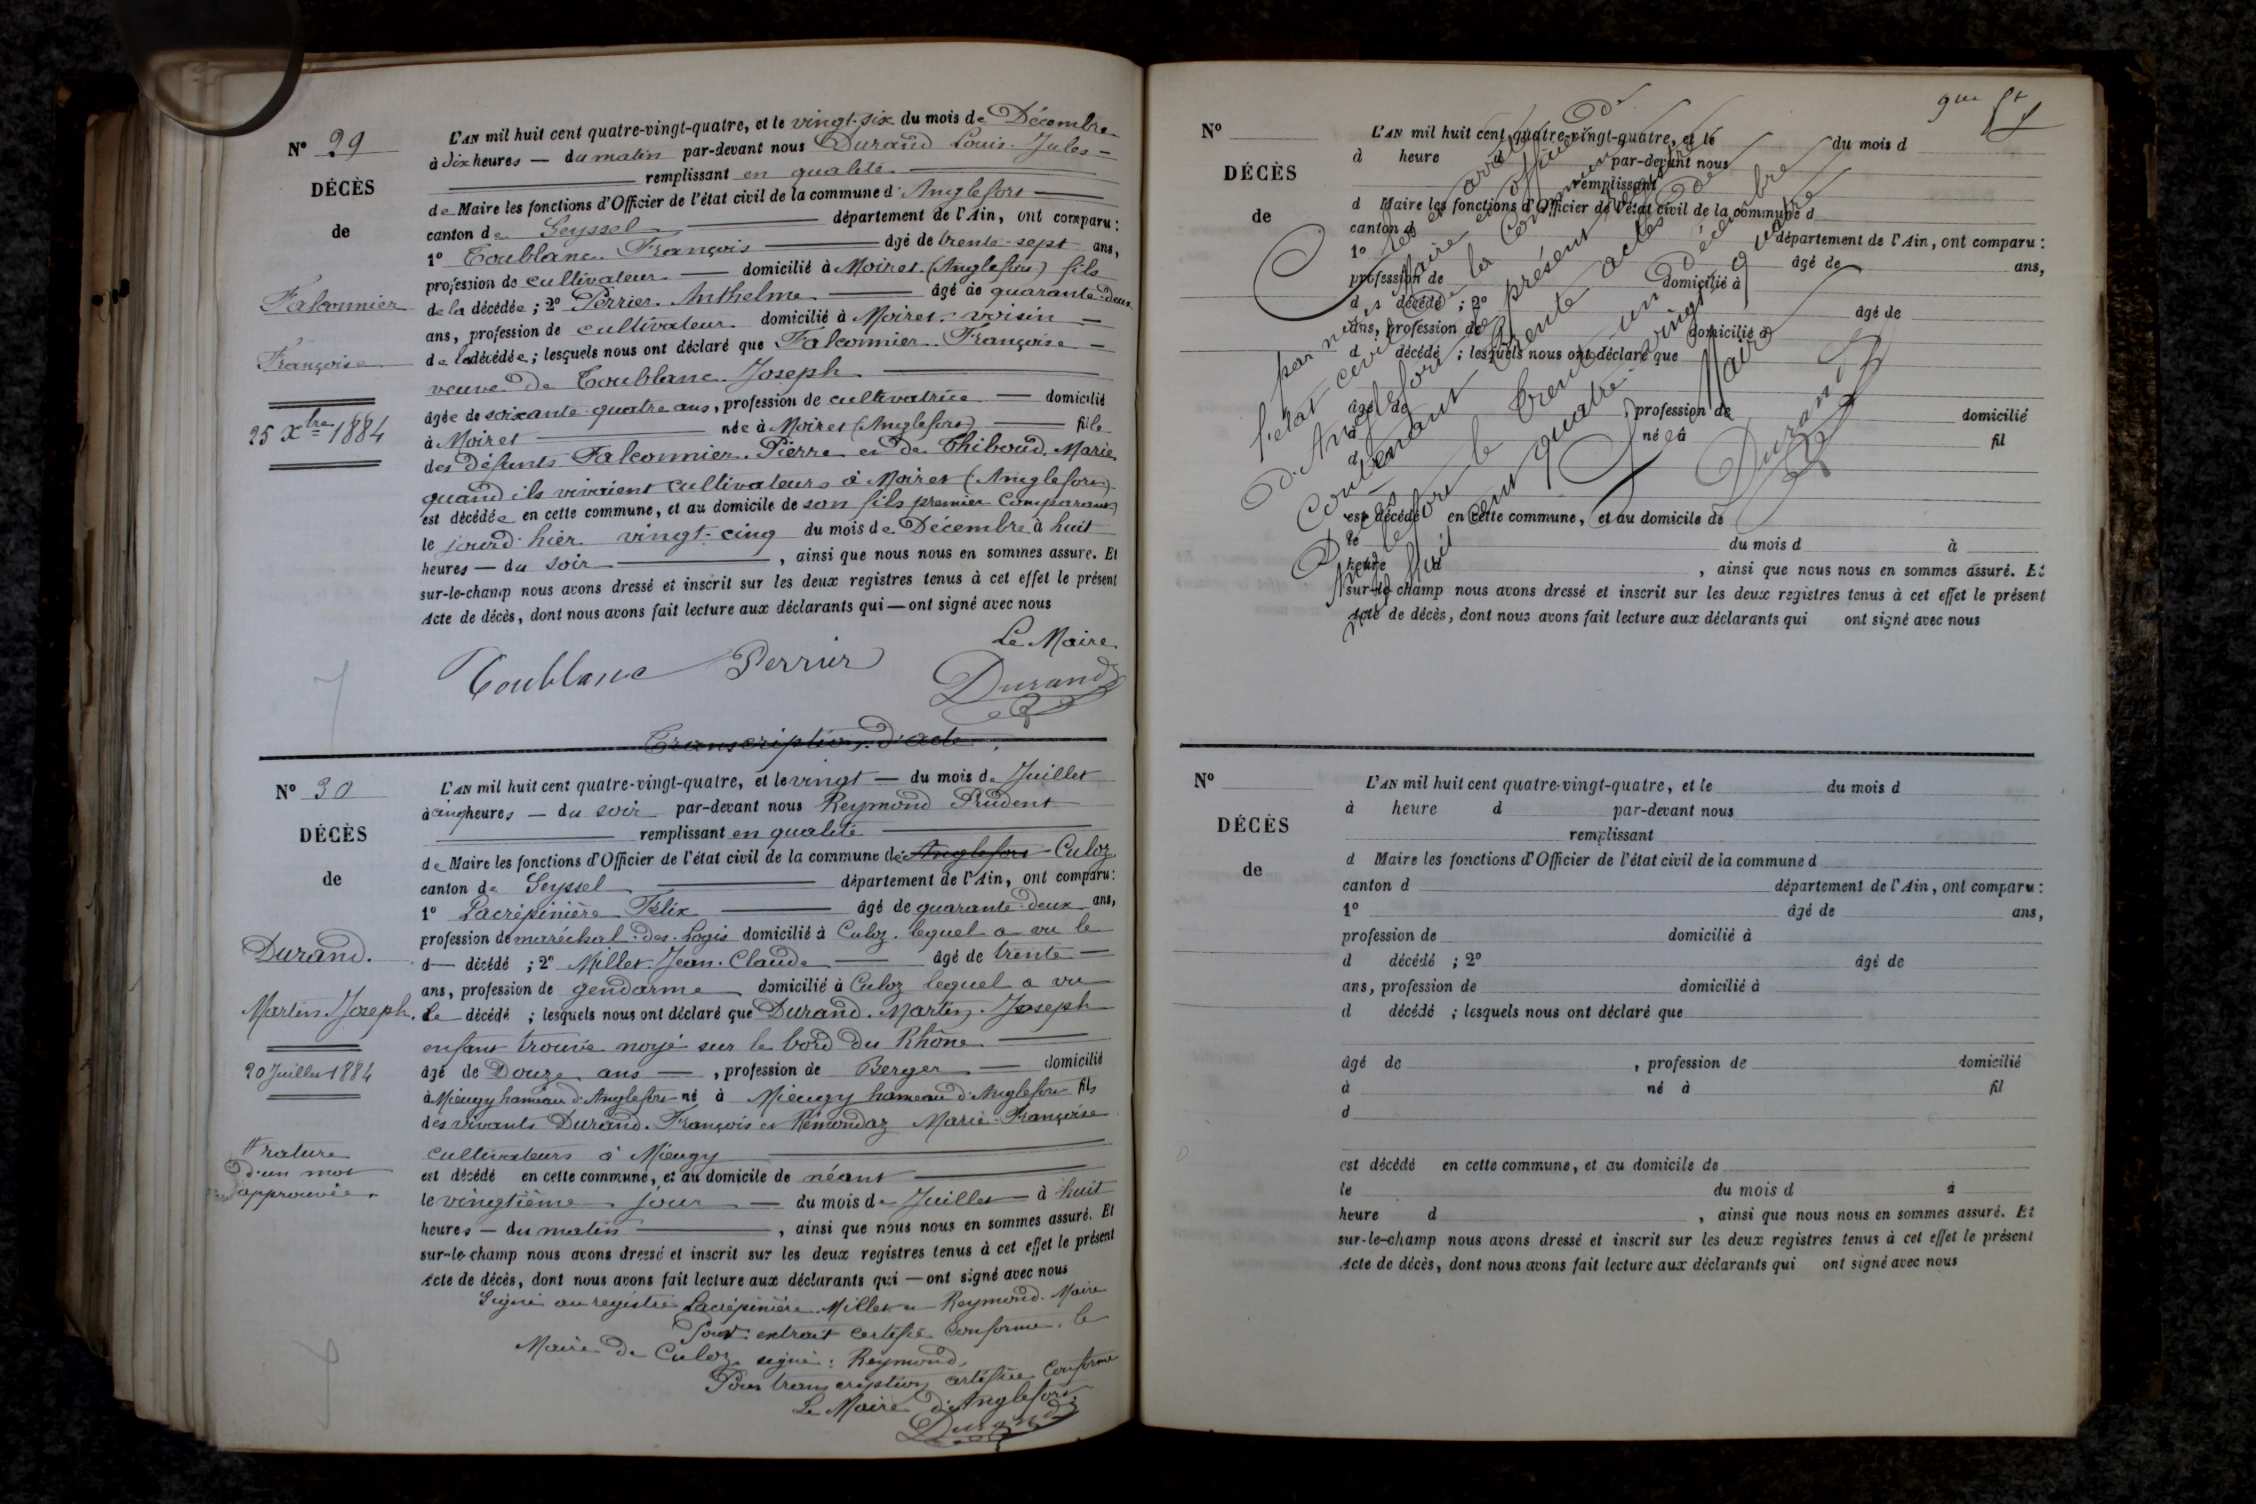 N° 29
DÉCÈS
de
Falconnier
Françoise
25 Xbre 1884
L'AN mil huit cent quatre-vingt-quatre, et le vingt-six du mois de Décembre
à dix heures — du matin par-devant nous Durand Louis Jules —
remplissant en qualité
de Maire les fonctions d'Officier de l'état civil de la commune d'Anglefort
canton de Seyssel département de l'Ain, ont comparu :
1° Toublanc François âgé de trente-sept ans,
profession de cultivateur — domicilié à Moiret (Anglefort) fils
de la décédée ; 2° Perrier Anthelme âgé de quarante-deux
ans, profession de cultivateur domicilié à Moiret voisin —
de la décédée ; lesquels nous ont déclaré que Falconnier Françoise —
veuve de Toublanc Joseph
âgée de soixante-quatre ans, profession de cultivatrice — domicilié
à Moiret née à Moiret (Anglefort) fille
des défunts Falconnier Pierre et de Thiboud Marie
quand ils vivaient cultivateurs à Moiret (Anglefort)
est décédée en cette commune, et au domicile de son fils premier comparant
le jourd'hier vingt-cinq du mois de Décembre à huit
heures — du soir , ainsi que nous nous en sommes assuré. Et
sur-le-champ nous avons dressé et inscrit sur les deux registres tenus à cet effet le présent
Acte de décès, dont nous avons fait lecture aux déclarants qui — ont signé avec nous
Le Maire
Toublanc Perrier Durand
Transcription d'acte
N° 30
DÉCÈS
de
Durand.
Martin Joseph.
20 Juillet 1884
rature
d'un mot
approuvée.
L'AN mil huit cent quatre-vingt-quatre, et le vingt — du mois de Juillet
à cinq heures — du soir par-devant nous Reymond Prudent
remplissant en qualité
de Maire les fonctions d'Officier de l'état civil de la commune de Anglefort Culoz
canton de Seyssel département de l'Ain, ont comparu :
1° Lacrépinière Félix âgé de quarante-deux ans,
profession de maréchal-des-logis domicilié à Culoz lequel a vu le
d— décédé ; 2° Millet Jean Claude — âgé de trente —
ans, profession de gendarme domicilié à Culoz lequel a vu
le décédé ; lesquels nous ont déclaré que Durand Martin Joseph
enfant trouvé noyé sur le bord du Rhône
âgé de Douze ans — , profession de Berger — domicilié
à Mieugy hameau d'Anglefort né à Mieugy hameau d'Anglefort fils
des vivants Durand François et Rémondaz Marie-Françoise
cultivateurs à Mieugy
est décédé en cette commune, et au domicile de néant
le vingtième jour — du mois de Juillet — à huit
heures — du matin , ainsi que nous nous en sommes assuré. Et
sur-le-champ nous avons dressé et inscrit sur les deux registres tenus à cet effet le présent
Acte de décès, dont nous avons fait lecture aux déclarants qui — ont signé avec nous
Signé au registre Lacrépinière Millet et Reymond Maire
Pour extrait certifié conforme, le
Maire de Culoz signé : Reymond.
Pour transcription certifiée conforme
Le Maire d'Anglefort
Durand
N°
DÉCÈS
de
L'AN mil huit cent quatre-vingt-quatre, et le du mois d
à heure d par-devant nous
remplissant
d Maire les fonctions d'Officier de l'état civil de la commune d
canton d département de l'Ain, ont comparu :
1° âgé de ans,
profession de domicilié à
d décédé ; 2° âgé de
ans, profession de domicilié à
d décédé ; lesquels nous ont déclaré que
âgé de , profession de domicilié
à né à fil
d
est décédé en cette commune, et au domicile de
le du mois d à
heure d , ainsi que nous nous en sommes assuré. Et
sur-le-champ nous avons dressé et inscrit sur les deux registres tenus à cet effet le présent
Acte de décès, dont nous avons fait lecture aux déclarants qui ont signé avec nous
Clos et arrêté
par nous Maire et officier de
l'état civil de la Commune
d'Anglefort le présent registre
contenant trente actes de
Décès
Anglefort le trente-un décembre
mil huit cent quatre-vingt-quatre
Le Maire
Durand
N°
DÉCÈS
de
L'AN mil huit cent quatre-vingt-quatre, et le du mois d
à heure d par-devant nous
remplissant
d Maire les fonctions d'Officier de l'état civil de la commune d
canton d département de l'Ain, ont comparu :
1° âgé de ans,
profession de domicilié à
d décédé ; 2° âgé de
ans, profession de domicilié à
d décédé ; lesquels nous ont déclaré que
âgé de , profession de domicilié
à né à fil
d
est décédé en cette commune, et au domicile de
le du mois d à
heure d , ainsi que nous nous en sommes assuré. Et
sur-le-champ nous avons dressé et inscrit sur les deux registres tenus à cet effet le présent
Acte de décès, dont nous avons fait lecture aux déclarants qui ont signé avec nous